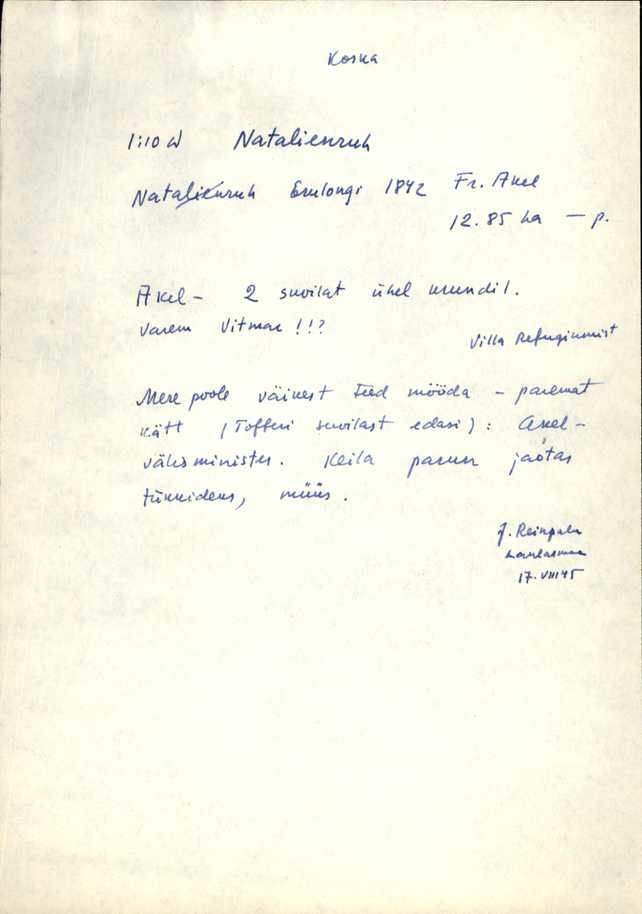 Koska
1:10 W Natalienruh
Natalienruh Emlongi 1842 Fr. Akel
12.85 ha — p.
Akel - 2 suvilat ühel krundil.
Varem Vitmar !!?
Villa Refuginmist
Mere poole väikest teed mööda - paremat
kätt (Tofferi suvilast edasi): Akel -
välisminister. Keila parun jaotas
tükkideks, müüs.
J. Reinpalu
Laulasmaa
17. VIII 45